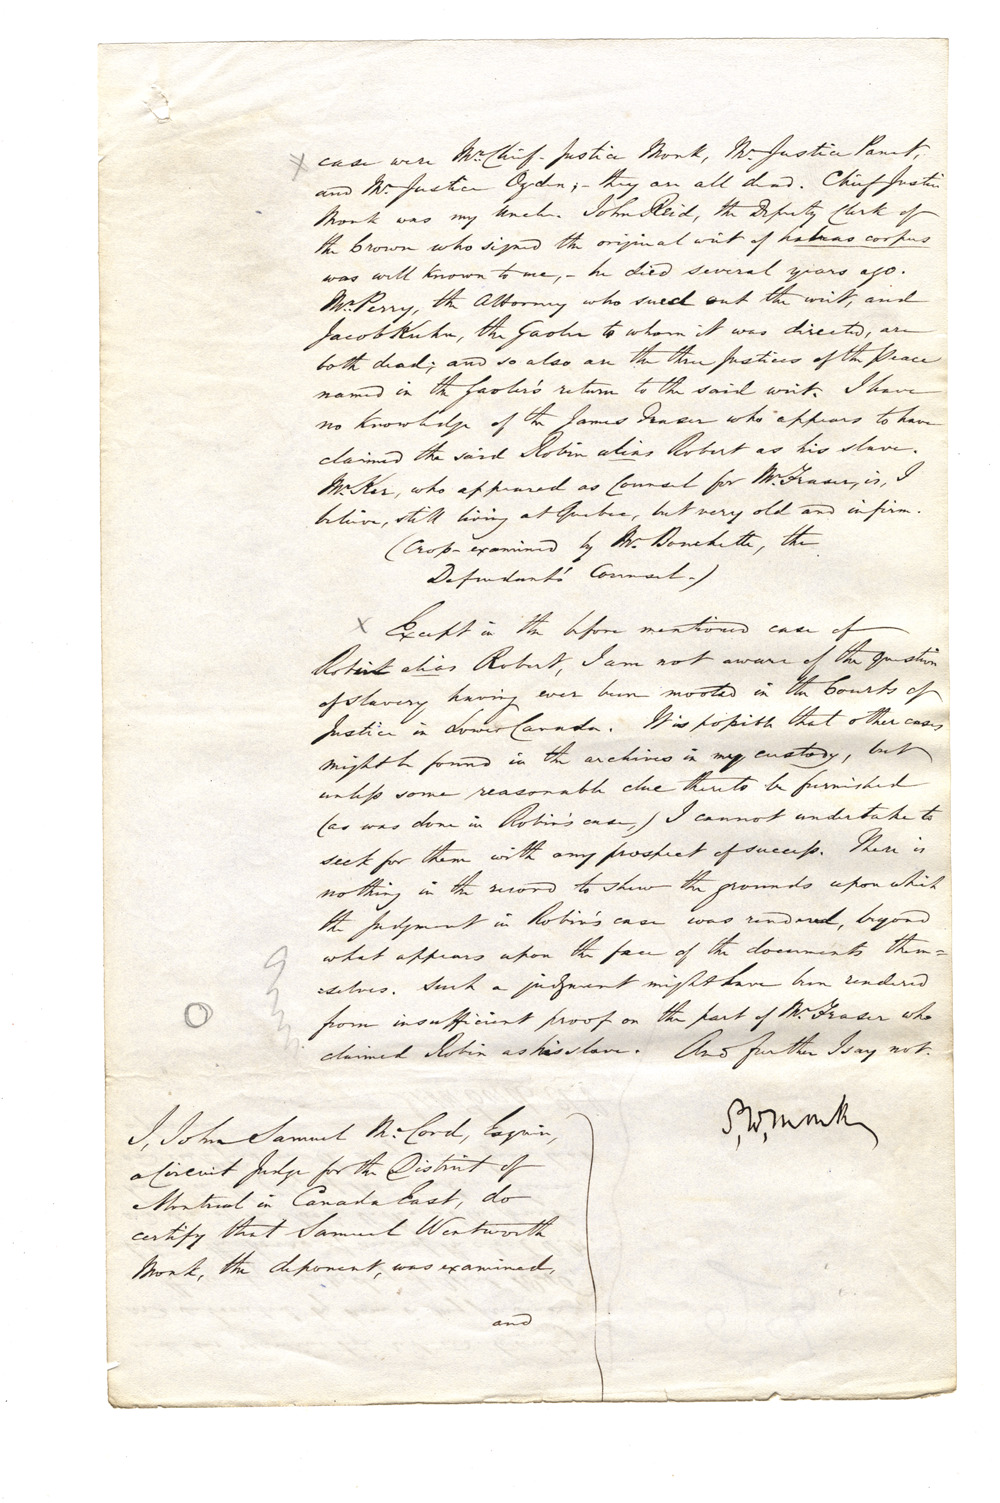 case were Mr. Chief-Justice Monk, Mr. Justice Panet,
and Mr. Justice Ogden;- they are all dead. Chief Justice
Monk was my Uncle. John Reid, the Deputy Clerk of
the Crown who signed the original writ of habeas corpus
was well known to me,- he died several years ago.
Mr. Perry, the Attorney who sued out the writ, and
Jacob Kuhn, the Gaoler to whom it was directed, are
both dead; and so also are the three Justices of the Peace
named in the Gaoler's return to the said writ. I have
no knowledge of the James Fraser who appears to have
claimed the said Robin alias Robert as his slave.
Mr. Ker, who appeared as Counsel for Mr. Fraser, is, I
believe, still living at Quebec, but very old and infirm.
(Cross-examined by Mr. Bouchette, the
Defendants' Counsel.)
x Except in the before mentioned case of
Robin alias Robert, I am not aware of the question
of slavery having ever been mooted in the Courts of
Justice in Lower Canada. It is possible that other cases
might be found in the archives in my custody, but
unless some reasonable clue thereto be furnished
(as was done in Robin's case,) I cannot undertake to
seek for them with any prospect of success. There is
nothing in the record to shew the grounds upon which
the Judgment in Robin's case was rendered, beyond
what appears upon the face of the documents them=
=selves. Such a judgment might have been rendered
from insufficient proof on the part of Mr. Fraser who
claimed Robin as his slave. And further I say not.
S,W,Monk
I, John Samuel McCord, Esquire,
a Circuit Judge for the District of
Montreal in Canada East, do
certify that Samuel Wentworth
Monk, the deponent, was examined,
and